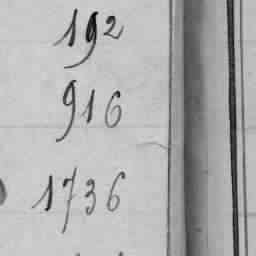 192
916
1736